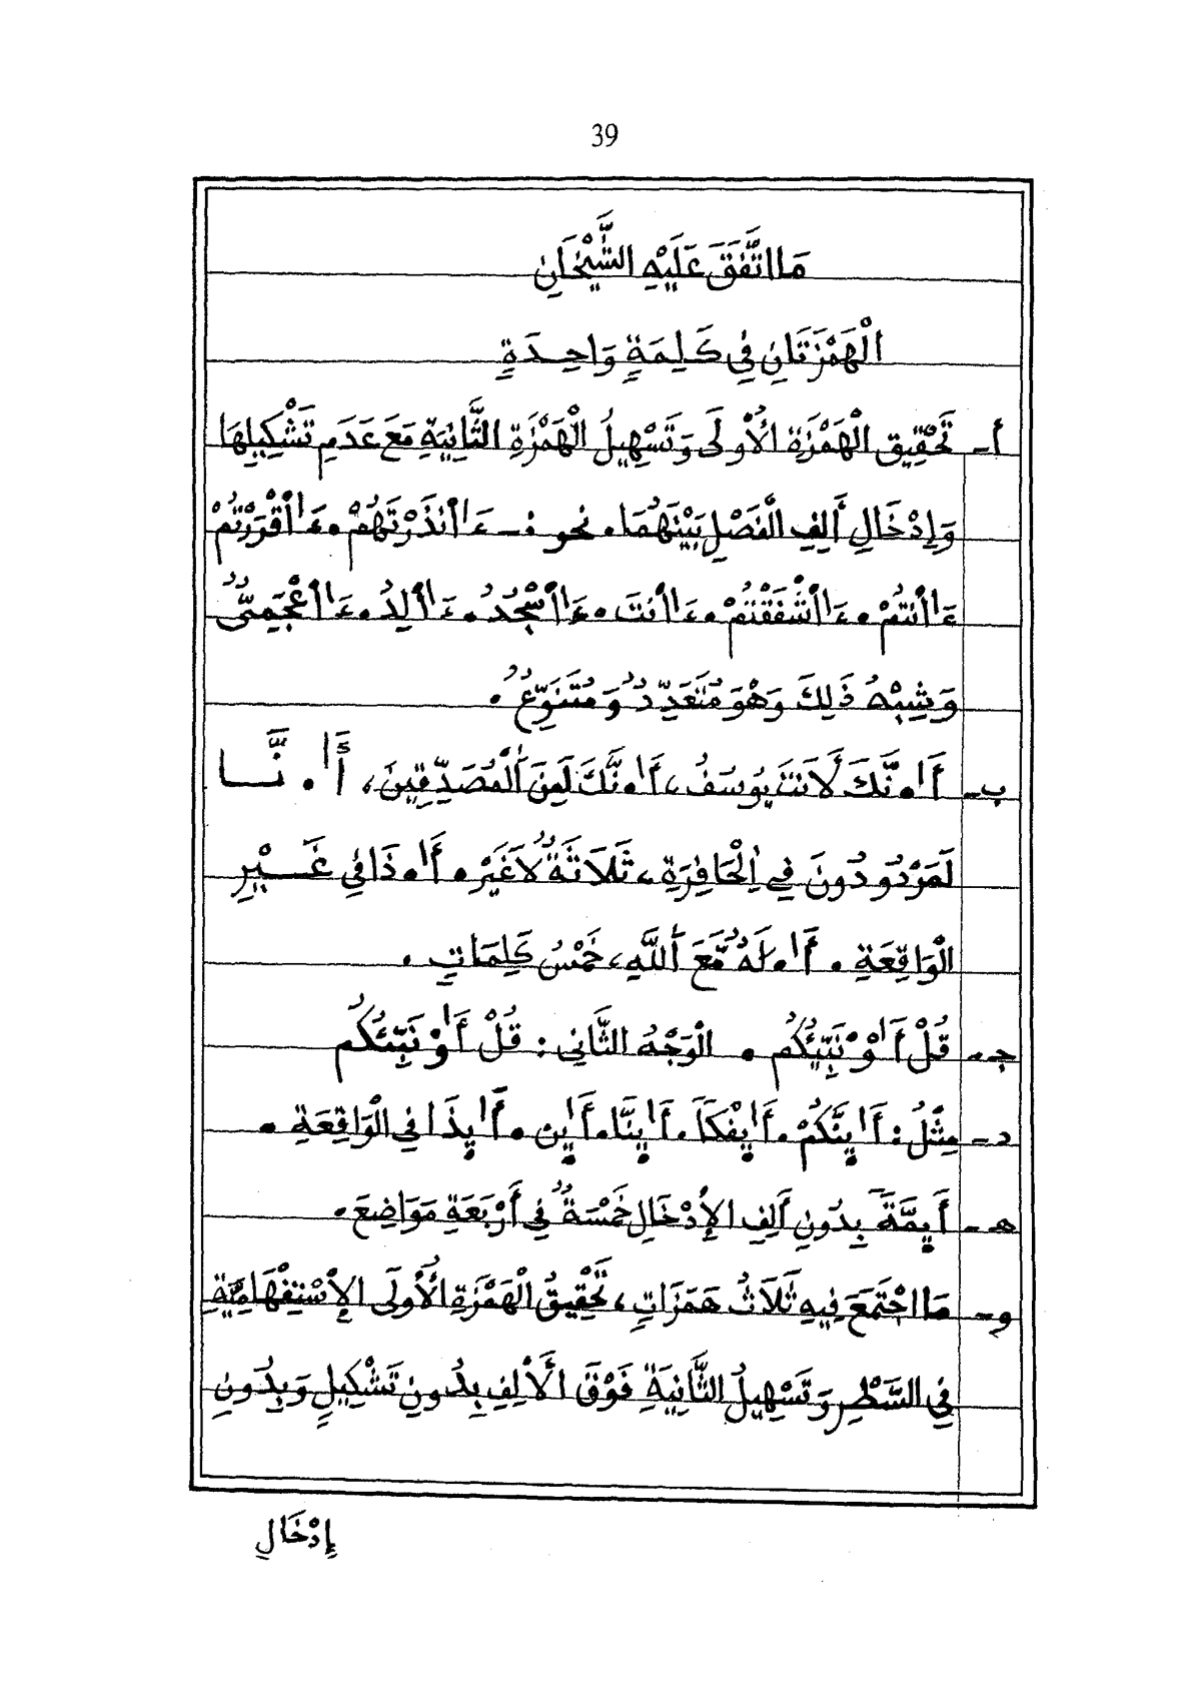 39
مَا اتَّفَقَ عَلَيْهِ الشَّيْخَانِ
الْهَمْزَتَانِ فِي كَلِمَةٍ وَاحِدَةٍ
أ- تَحْقِيق الْهَمْزَةِ الأُولَى وَتَسْهِيلُ الْهَمْزَةِ الثَّانِيَةِ مَعَ عَدَمِ تَشْكِيلِهَا
وَإِدْخَالِ أَلِفِ الْفَصْلِ بَيْنَهُمَا. نحو :- ءَاا۬نذَرْتَهُمْ. ءَاا۬قْرَرْتُمْ
ءَاا۬نتُمْ. ءَاا۬شْفَقْتُمْ. ءَاا۬نتَ. ءَاا۬سْجُدُ. ءَاا۬لِدُ. ءَاا۬عْجَمِىٌّ
وَشِبْهُ ذَلِكَ وَهْوَ مُتَعَدِّدٌ وَمُتَنَوِّعٌ.
ب- أَا.نَّكَ لَأَنتَ يُوسُفُ، أَا.نَّكَ لَمِنَ اَلْمُصَدِّقِينَ، أَا.نَّا
لَمَرْدُودُونَ فِي اِلْحَافِرَةِ، ثَلَاثَةٌ لَا غَيْرُ. أَا.ذَا فِي غَيْرِ
الْوَاقِعَةِ. أَا.لَهٌ مَّعَ اَللَّهِ، خَمْسُ كَلِمَاتٍ.
جـ- قُلْ أَاو۬نَبِّئُكُم . الْوَجْهُ الثَّانِي : قُلْ أَاو۬نَبِّئُكُم
د- مِثْلُ : أَاي۪نَّكُمْ. أَاي۪فْكاً. أَاي۪نَّا. أَاي۪ن. أَاي۪ذَا فِي الْوَاقِعَةِ.
هـ- أَي۪مَّةَ بِدُونِ أَلِفِ الإِدْخَالِ خَمْسَةٌ فِي أَرْبَعَةِ مَوَاضِعَ.
و- مَا اجْتَمَعَ فِيهِ ثَلَاثُ هَمَزَاتٍ، تَحْقِيقُ الْهَمْزَةِ الأُولَى الإِسْتِفْهَامِيَّةِ
فِي السَّطْرِ وَتَسْهِيلُ الثَّانِيَةِ فَوْقَ الْأَلِفِ بِدُونِ تَشْكِيلٍ وَبِدُونِ
إِدْخَالِ